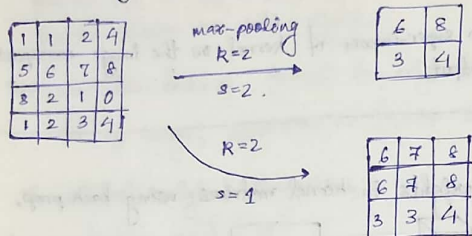 1 1 2 4
5 6 7 8
3 2 1 0
1 2 3 4
max-pooling
k=2
s=2.
6 8
3 4
k=2
s=1
6 7 8
6 7 8
3 3 4